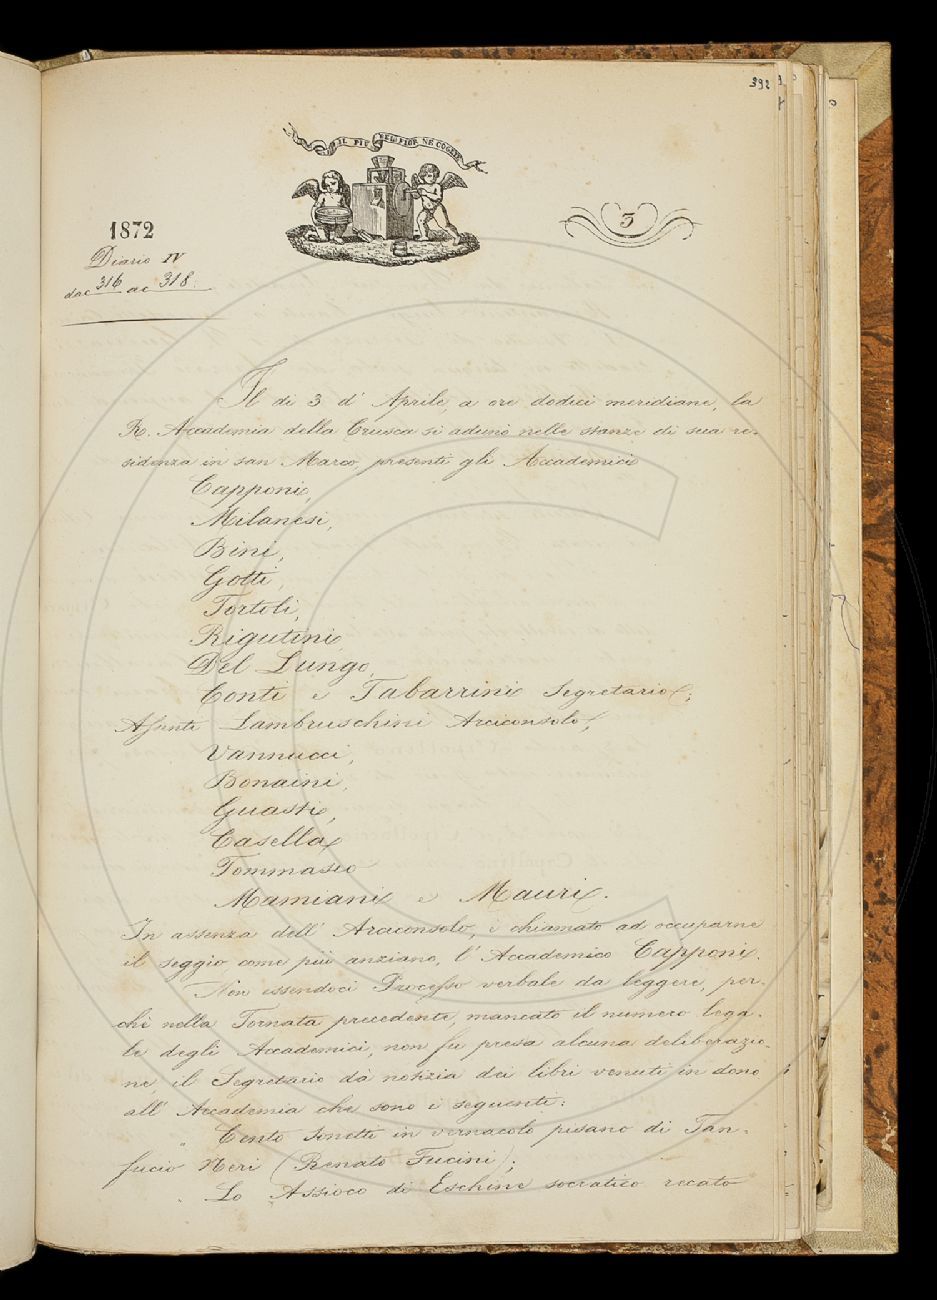 392
IL PIÙ BEL FIOR NE COGLIE
3
1872
Diario IV
dac 316 ac 318.
Il dì 3 d' Aprile, a ore dodici meridiane, la
R. Accademia della Crusca si adunò nelle stanze di sua re-
sidenza in san Marco, presenti gli Accademici
Capponi,
Milanesi,
Bini,
Gotti,
Tortoli,
Rigutini,
Del Lungo,
Conti e Tabarrini Segretario;
Assenti Lambruschini Arciconsolo,
Vannucci,
Bonaini,
Guasti,
Casella,
Tommaseo
Mamiani e Mauri.
In assenza dell' Arciconsolo, è chiamato ad occuparne
il seggio come più anziano, l' Accademico Capponi.
Non essendoci Processo verbale da leggere, per-
chè nella Tornata precedente, mancato il numero lega-
le degli Accademici, non fu presa alcuna deliberazio-
ne il Segretario dà notizia dei libri venuti in dono
all' Accademia che sono i seguenti:
Cento Sonetti in vernacolo pisano di Tan-
fucio Neri (Renato Fucini);
Lo Assioco di Eschine socratico recato